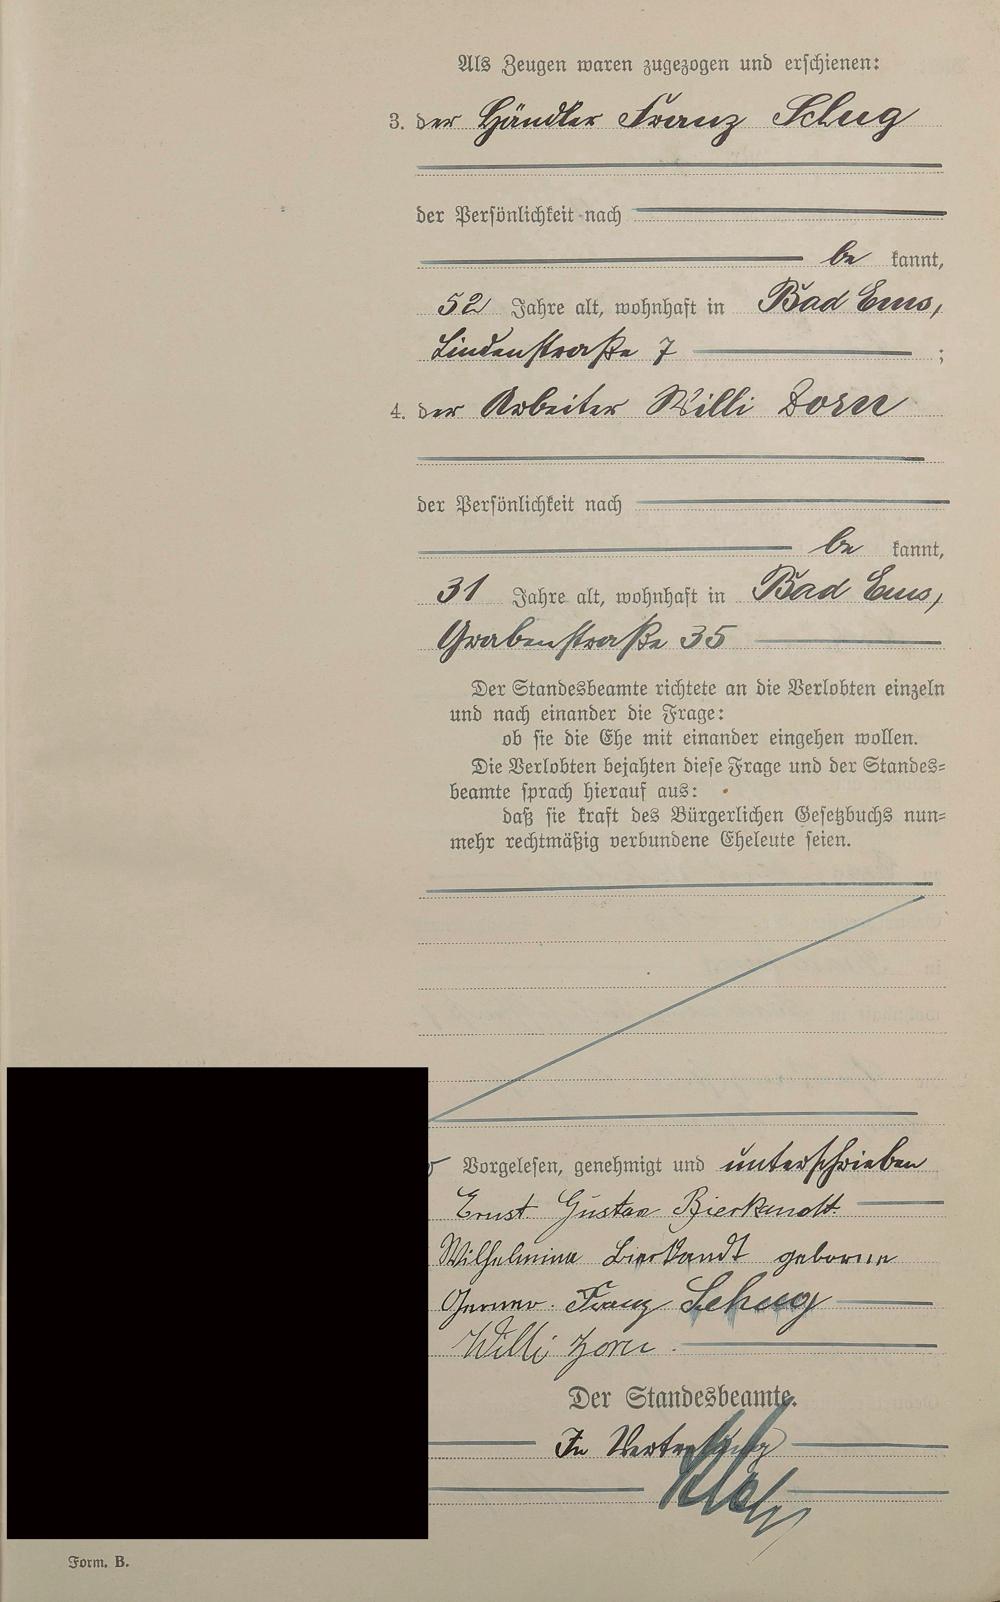 Als Zeugen waren zugezogen und erschienen:
3. der Händler Franz Schug
der Persönlichkeit nach
be kannt,
52 Jahre alt, wohnhaft in Bad Ems,
Lindenstraße 7 ;
4. der Arbeiter Willi Zorn
der Persönlichkeit nach
be kannt,
31 Jahre alt, wohnhaft in Bad Ems,
Grabenstraße 35
Der Standesbeamte richtete an die Verlobten einzeln
und nach einander die Frage:
ob sie die Ehe mit einander eingehen wollen.
Die Verlobten bejahten diese Frage und der Standes=
beamte sprach hierauf aus:
daß sie kraft des Bürgerlichen Gesetzbuchs nun=
mehr rechtmäßig verbundene Eheleute seien.
Vorgelesen, genehmigt und unterschrieben
Ernst Gustav
Wilhelmina geborne
Franz Schug
Willi Zorn.
Der Standesbeamte.
In Vertretung
Form. B.